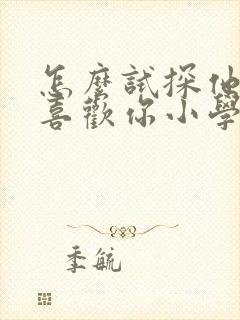 怎麼試探他
喜歡你小學
季毓